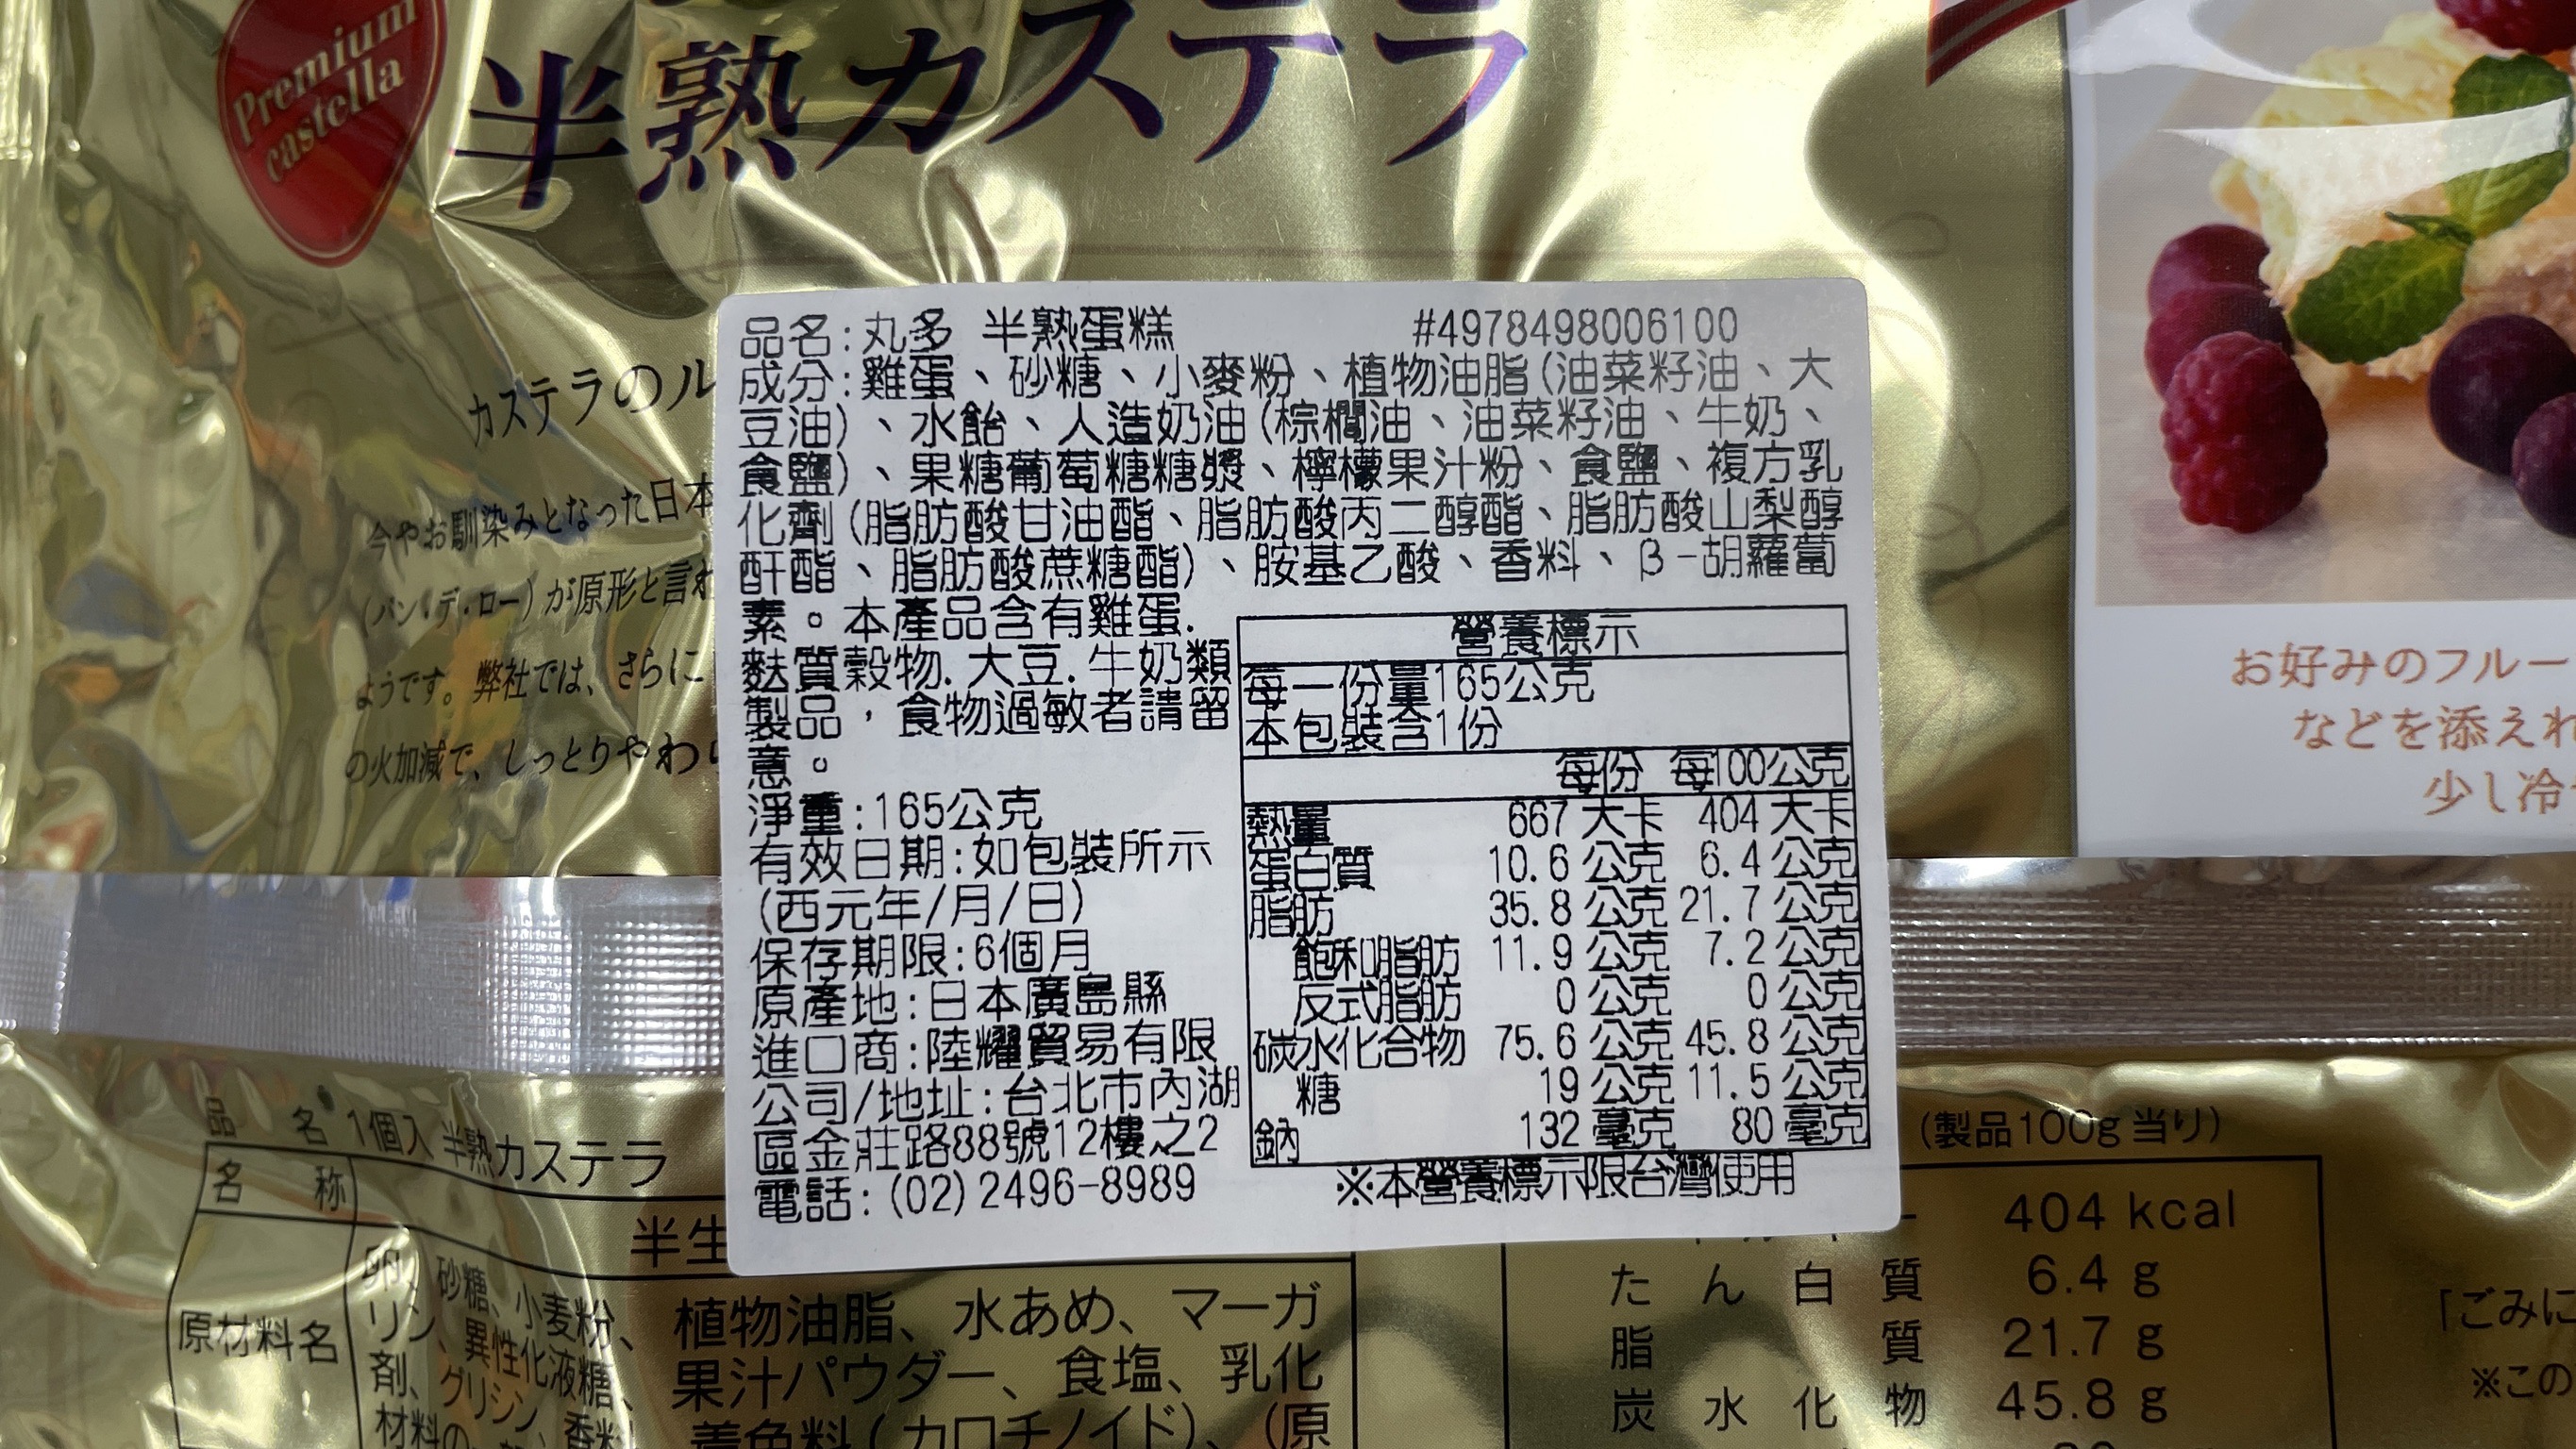 Premium
castella
半熟カステラ
カステラのル
今やお馴染みとなった日本
(パン・デ・ロー)が原形と言わ
ようです。弊社では、さらに
の火加減で、しっとりやわら
品名:丸多 半熟蛋糕 #4978498006100
成分:雞蛋、砂糖、小麥粉、植物油脂(油菜籽油、大
豆油)、水飴、人造奶油(棕櫚油、油菜籽油、牛奶、
食鹽)、果糖葡萄糖糖漿、檸檬果汁粉、食鹽、複方乳
化劑(脂肪酸甘油酯、脂肪酸丙二醇酯、脂肪酸山梨醇
酐酯、脂肪酸蔗糖酯)、胺基乙酸、香料、β-胡蘿蔔
素。本產品含有雞蛋.
麩質穀物.大豆.牛奶類
製品，食物過敏者請留
意。
淨重:165公克
有效日期:如包裝所示
(西元年/月/日)
保存期限:6個月
原產地:日本廣島縣
進口商:陸耀貿易有限
公司/地址:台北市內湖
區金莊路88號12樓之2
電話:(02)2496-8989
營養標示
每一份量165公克
本包裝含1份
每份 每100公克
熱量 667 大卡 404 大卡
蛋白質 10.6 公克 6.4 公克
脂肪 35.8 公克 21.7 公克
飽和脂肪 11.9 公克 7.2 公克
反式脂肪 0 公克 0 公克
碳水化合物 75.6 公克 45.8 公克
糖 19 公克 11.5 公克
鈉 132 毫克 80 毫克
※本營養標示限台灣使用
お好みのフルー
などを添えれ
少し冷
品 名 1個入 半熟カステラ
名 称
半生
原材料名
卵、砂糖、小麦粉、植物油脂、水あめ、マーガ
リン、異性化液糖、果汁パウダー、食塩、乳化
剤、グリシン、香料
着色料(カロチノイド)、(原
材料の
(製品100g当り)
404 kcal
たん白質 6.4 g
脂質 21.7 g
炭水化物 45.8 g
「ごみに
※この